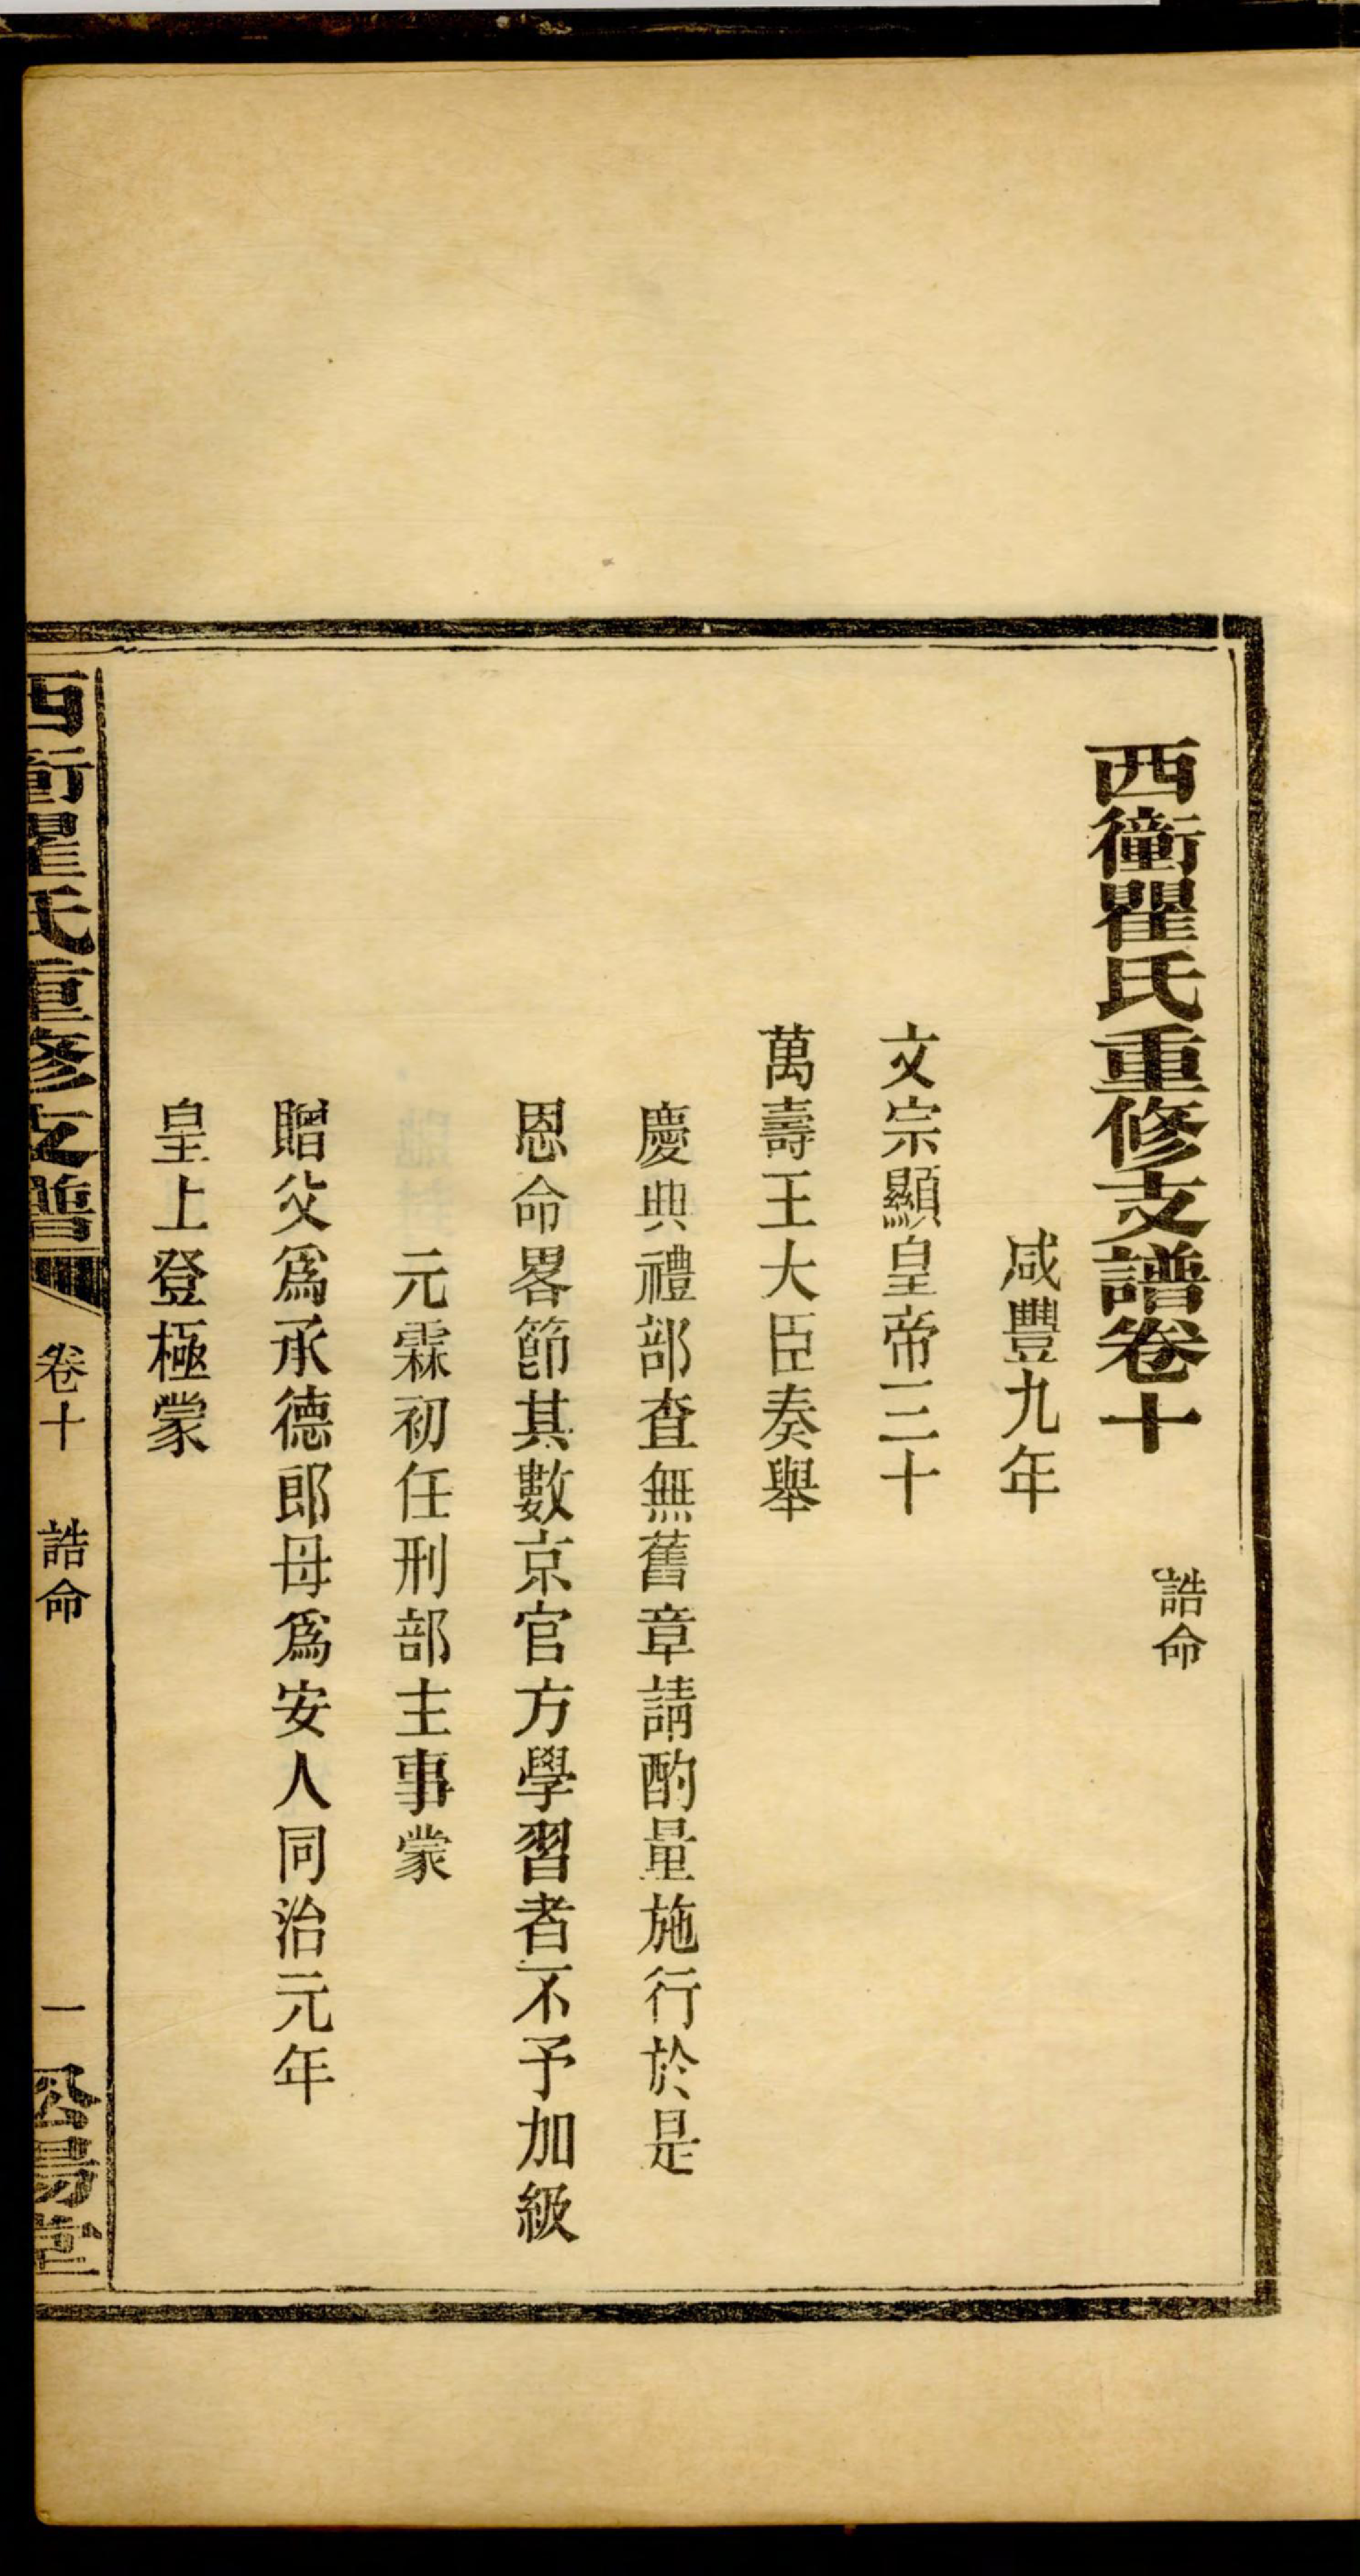 西衝瞿氏重修支譜卷十
誥命
咸豐九年
文宗顯皇帝三十
萬壽王大臣奏舉
慶典禮部查無舊章請酌量施行於是
恩命畧節其數京官方學習者不予加級
元霖初任刑部主事蒙
贈父爲承德郎母爲安人同治元年
皇上登極蒙
西衝瞿氏重修支譜
卷十
誥命
一
堂